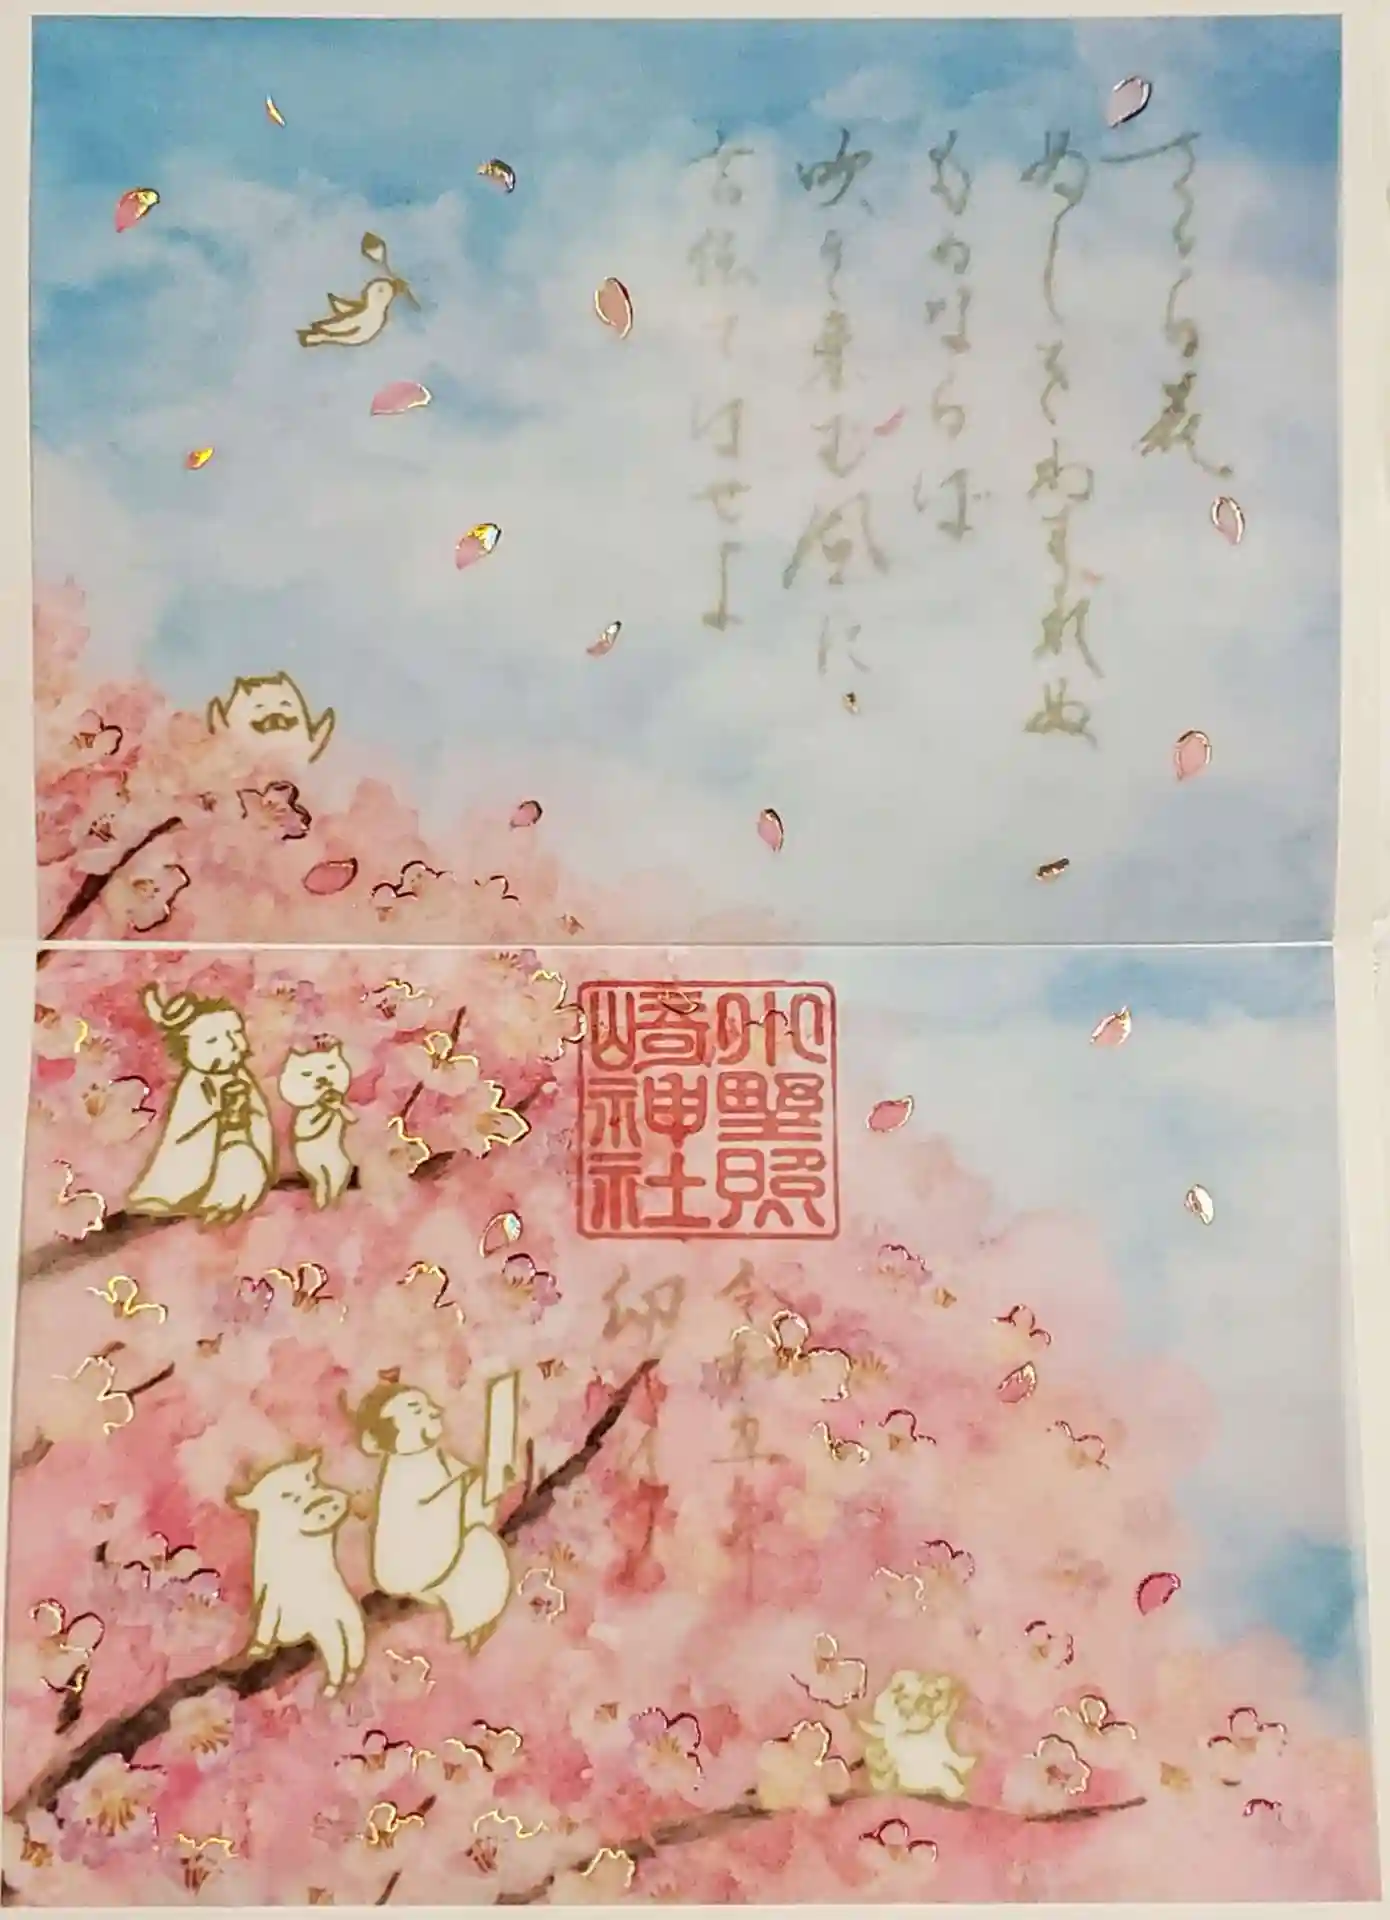 さくら花
ぬしをわすれぬ
ものならば
吹き来む風に
言伝てはせよ
小野照
崎神社
令和五年
卯月